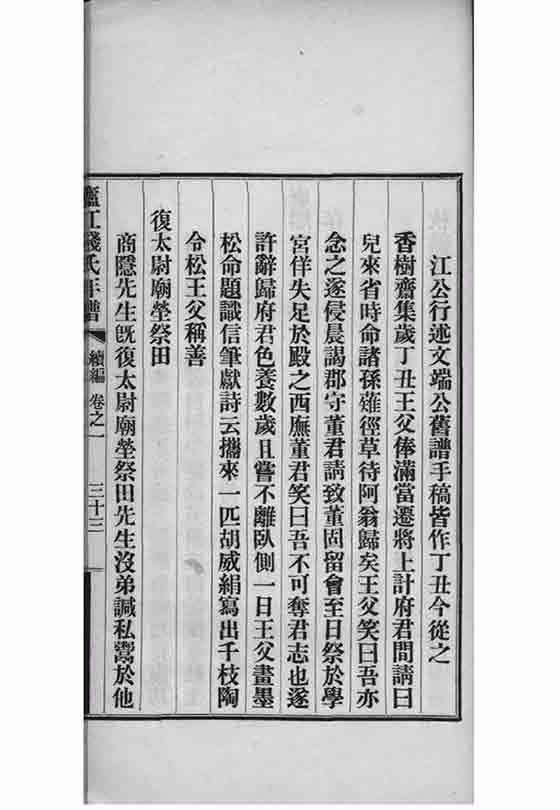 江公行述文端公舊譜手稿皆作丁丑今從之
香樹齋集歲丁丑王父俸滿當遷將上計府君間請曰
兒來省時命諸孫薙徑草待阿翁歸矣王父笑曰吾亦
念之遂侵晨謁郡守董君請致董固留會至日祭於學
宮佯失足於殿之西廡董君笑曰吾不可奪君志也遂
許辭歸府君色養數歲且嘗不離臥側一日王父畫墨
松命題識信筆獻詩云攜來一匹胡威絹寫出千枝陶
令松王父稱善
復太尉廟塋祭田
商隱先生旣復太尉廟塋祭田先生沒弟諴私鬻於他
廬江錢氏年譜 續編 卷之一 三十三